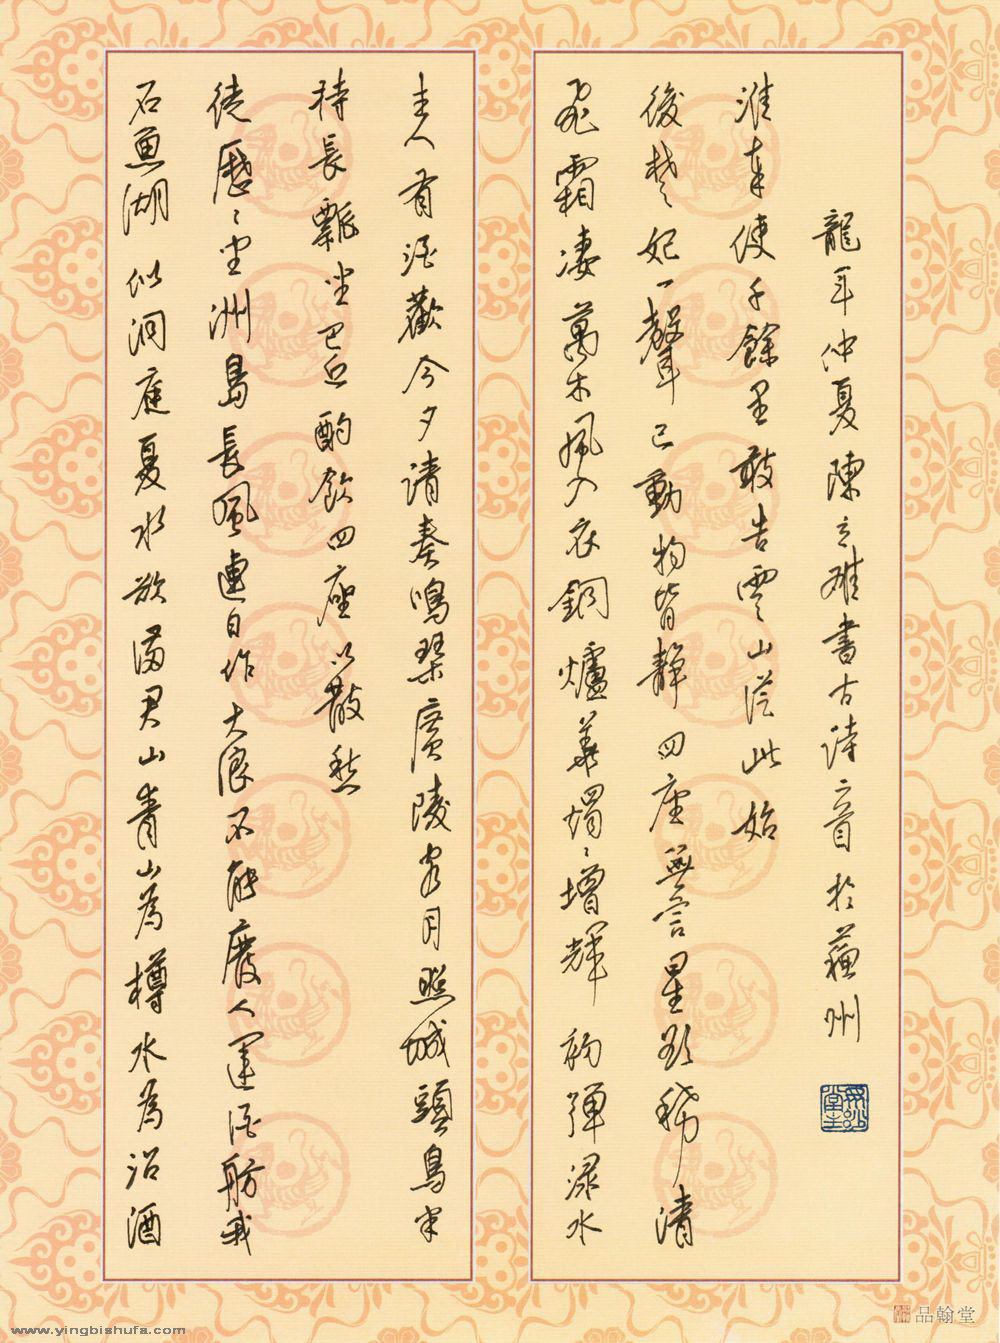 石魚湖似洞庭夏水欲滿君山青山為樽水為沼酒
徒歷〻坐洲島長風連日作大浪不能廢人運酒舫我
持長瓢坐巴丘酌飲四座以散愁
主人有酒歡今夕請奏鳴琴廣陵客月照城頭烏半
飛霜淒萬木風入衣銅爐華燭〻增輝初彈淥水
後楚妃一聲已動物皆靜四座無言星欲稀清
淮奉使千餘里敢告雲山從此始
龍年仲夏陳書古詩二首於蘇州
品翰堂
www.yingbishufa.com